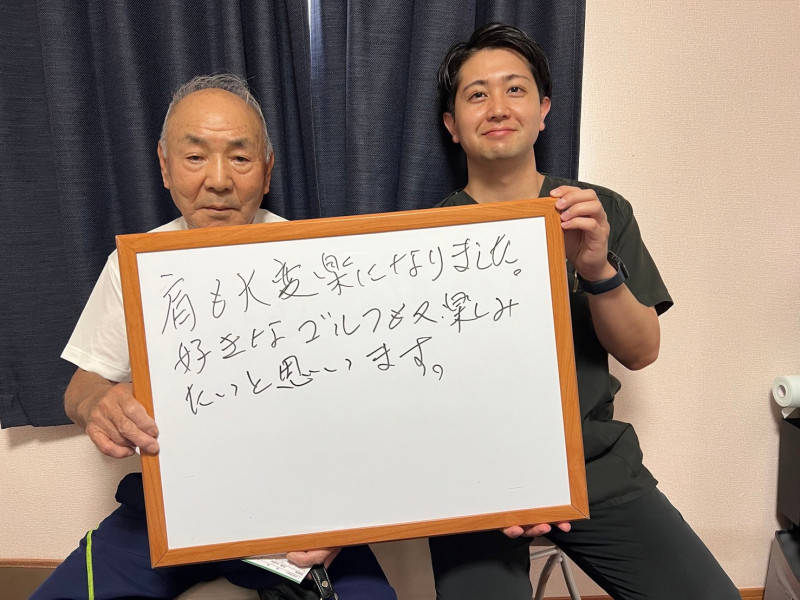 肩も大変楽になりました。
好きなゴルフも又楽しみ
たいと思います。